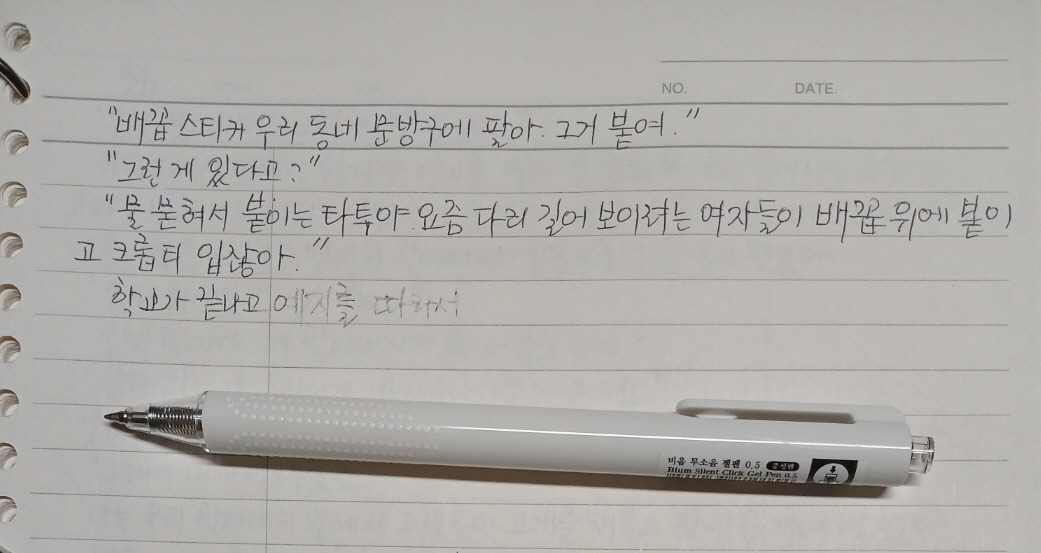 NO. DATE.
"배꼽 스티커 우리 동네 문방구에 팔아. 그거 붙여."
"그런 게 있다고?"
"물 묻혀서 붙이는 타투야. 요즘 다리 길어 보이려는 여자들이 배꼽 위에 붙이
고 크롭티 입잖아."
학교가 끝나고 예지를 따라서
비움 무소음 젤펜 0.5 중성펜
Bium Silent Click Gel Pen 0.5